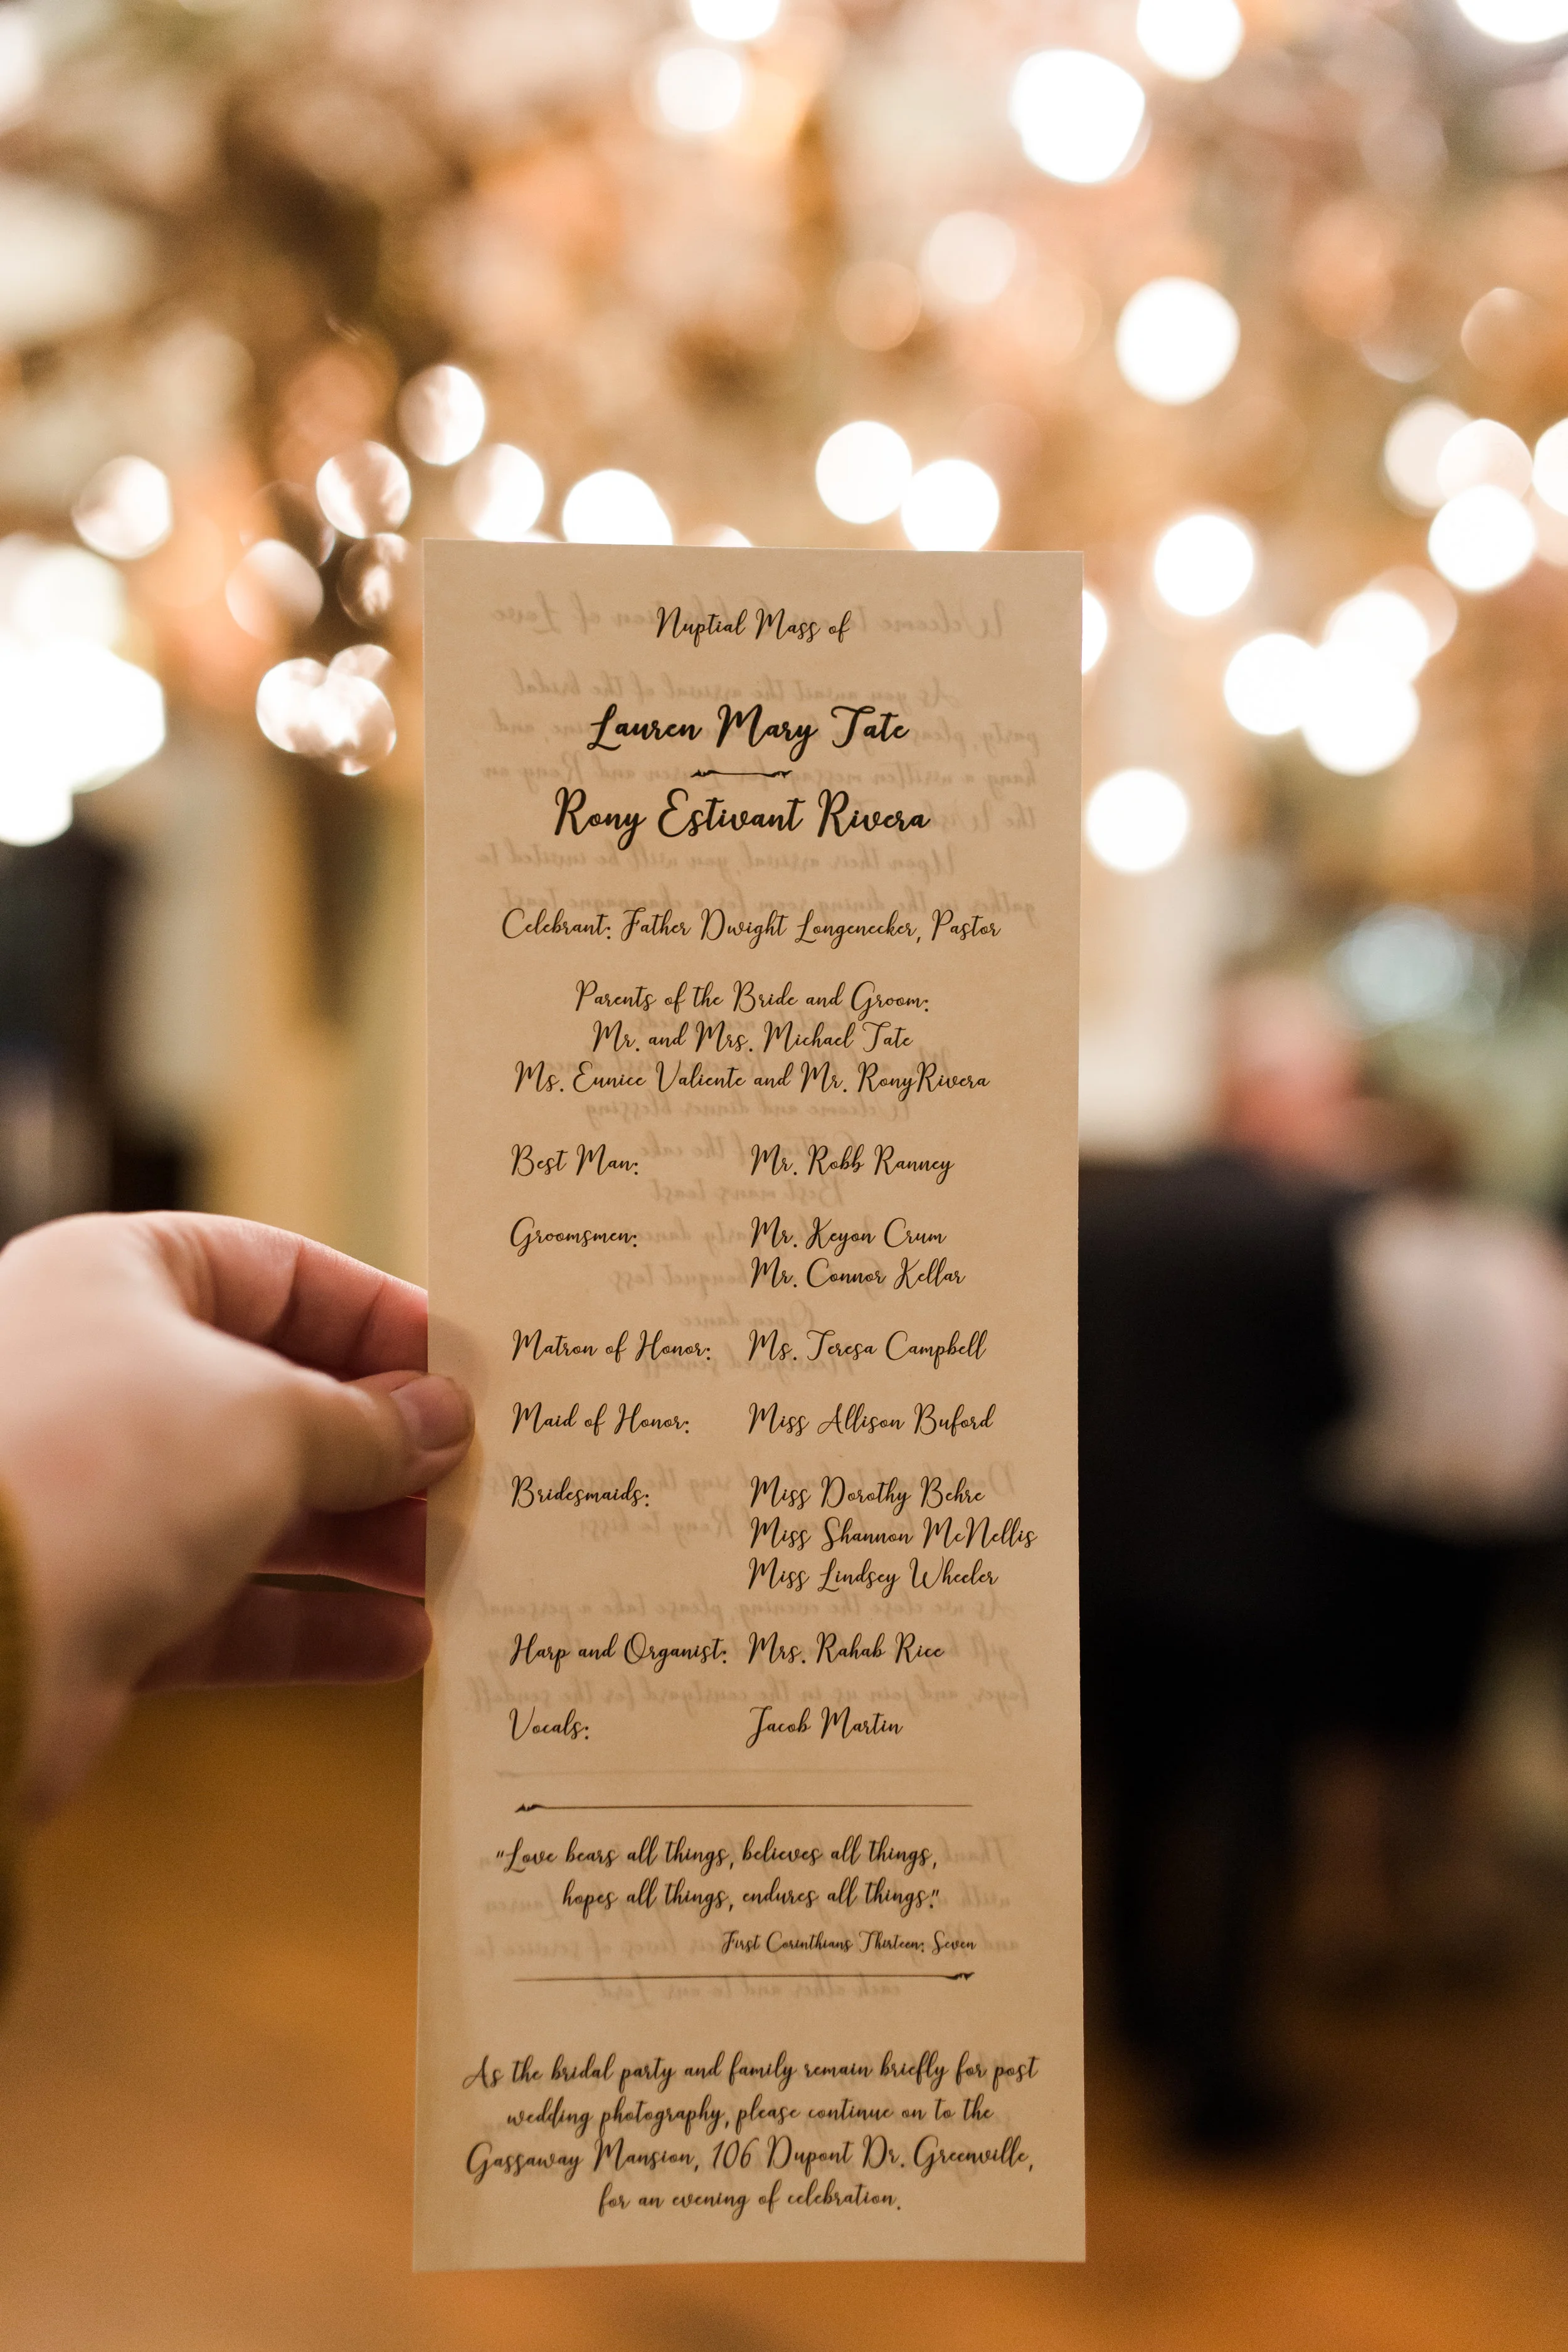 Nuptial Mass of
Lauren Mary Tate
Rony Estivant Rivera
Celebrant: Father Dwight Longenecker, Pastor
Parents of the Bride and Groom:
Mr. and Mrs. Michael Tate
Ms. Eunice Valiente and Mr. RonyRivera
Best Man: Mr. Robb Ranney
Groomsmen: Mr. Keyon Crum
Mr. Connor Kellar
Matron of Honor: Ms. Teresa Campbell
Maid of Honor: Miss Allison Buford
Bridesmaids: Miss Dorothy Behre
Miss Shannon McNellis
Miss Lindsey Wheeler
Harp and Organist: Mrs. Rahab Rice
Vocals: Jacob Martin
"Love bears all things, believes all things,
hopes all things, endures all things."
First Corinthians Thirteen: Seven
As the bridal party and family remain briefly for post
wedding photography, please continue on to the
Gassaway Mansion, 106 Dupont Dr. Greenville,
for an evening of celebration.